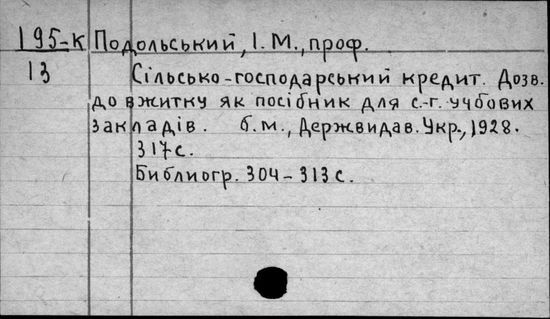 195-к Подольський, І. М., проф.
13 Сільсько-господарський кредит. Дозв.
до вжитку як посібник для с.-г. учбових
закладів. б.м., Держвидав. Укр., 1928.
317 с.
Библиогр. 304-313 с.